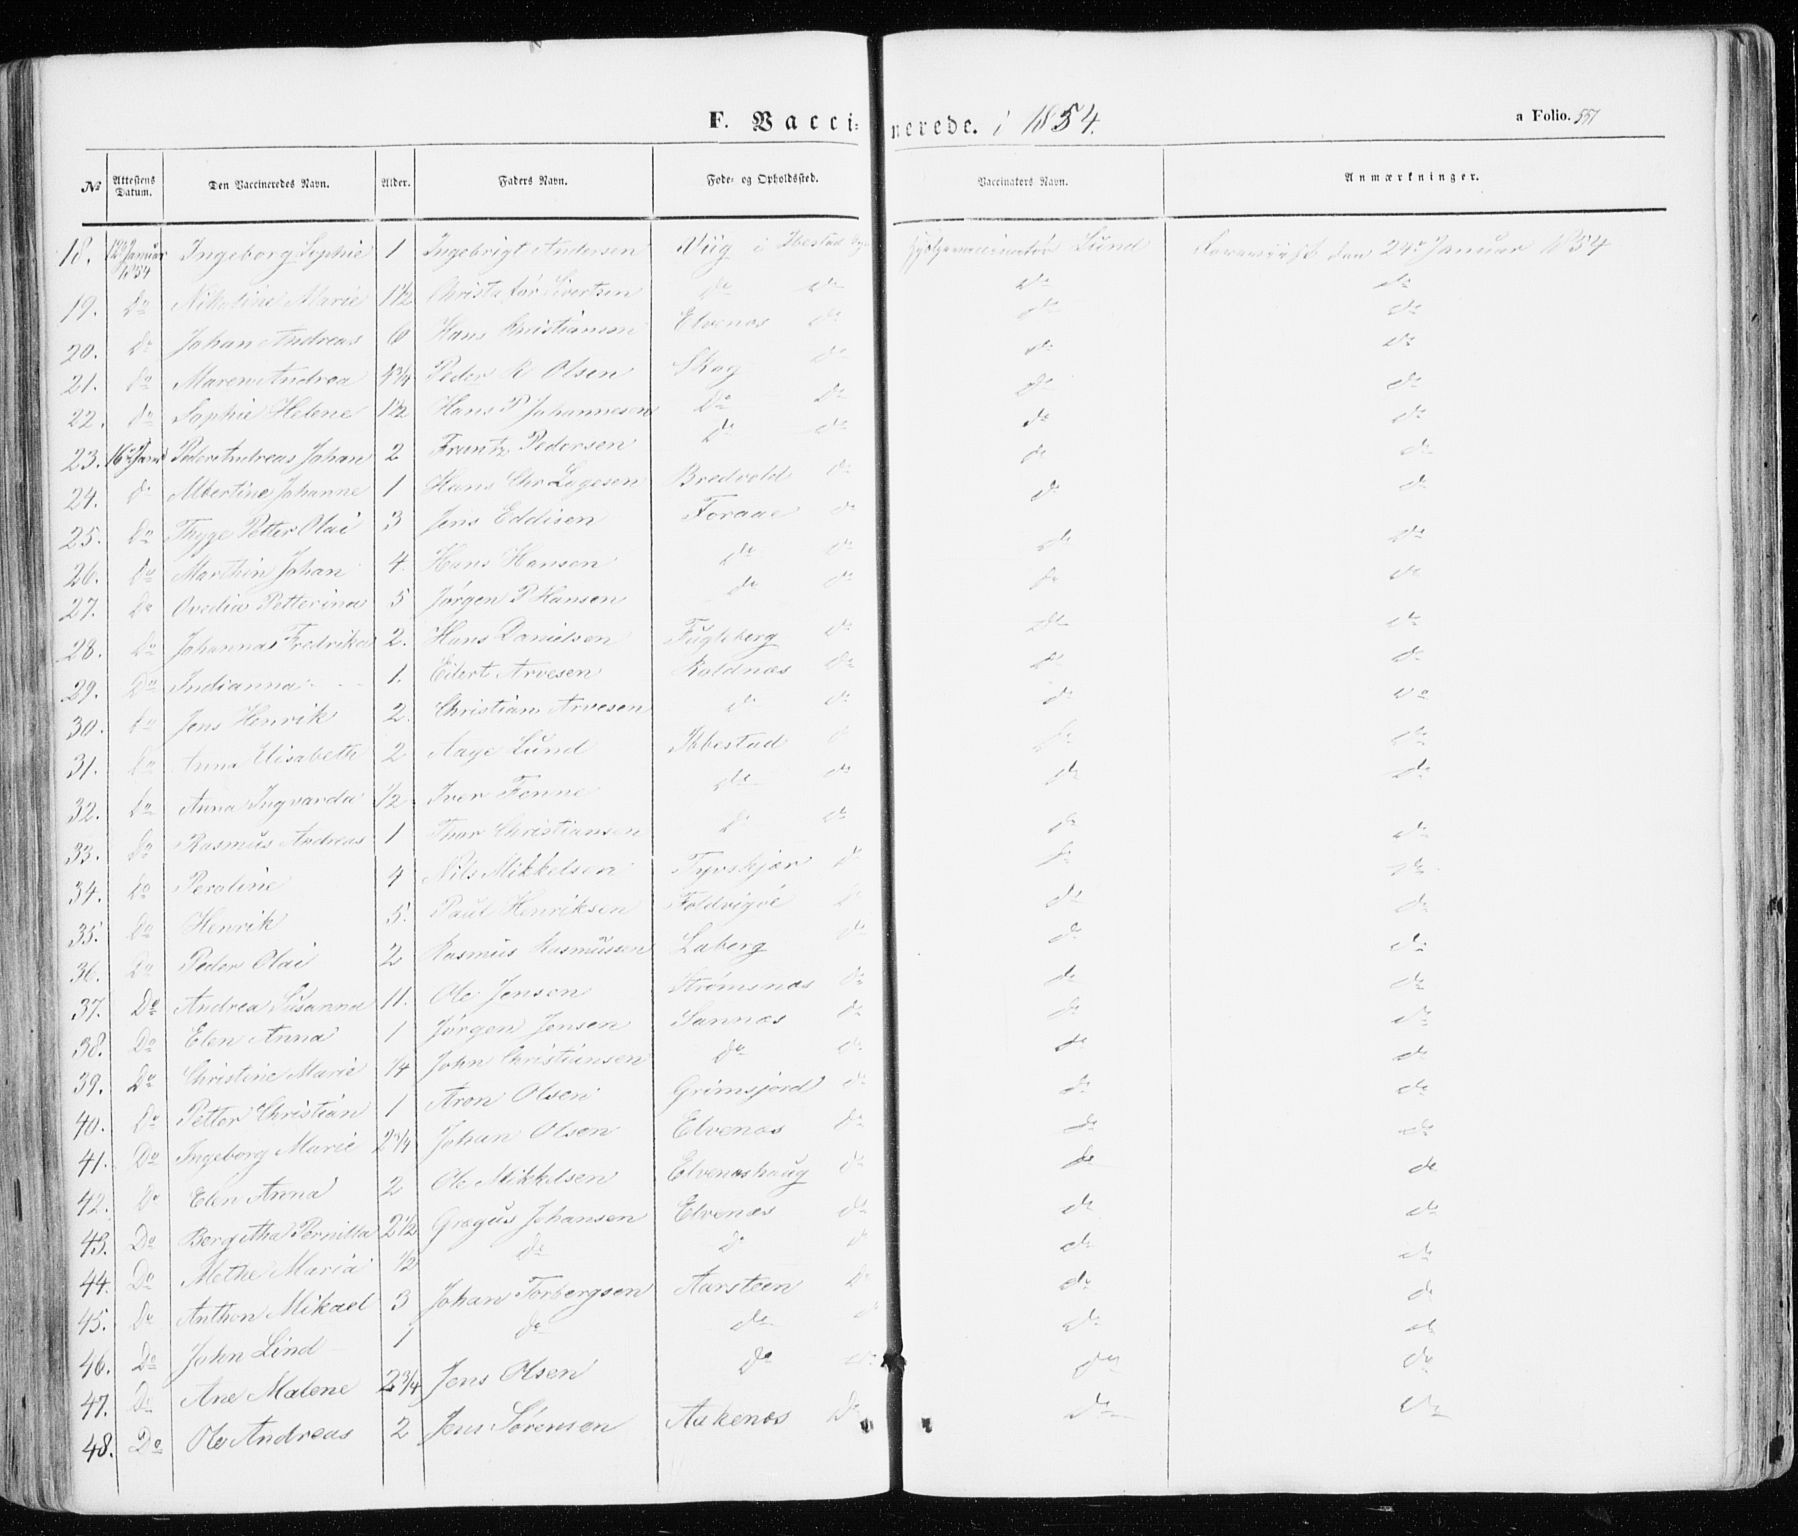 F. Vaccinerede. i 1854. a Folio. 551
№ Attestens Datum. Den Vaccineredes Navn. Alder. Faders Navn. Føde- og Opholdssted. Vaccinators Navn. Anmærkninger.
18. Januar 1854 Ingeborg Sophie 1 Ingebrigt Andersen i Ibestad Lund den 24de Januar 1854
19. Do Nikoline Marie 1½ Christafør Sivertsen do do do do
20. do Johan Andreas 6 Hans Kristiansen Elvenæs do do do
21. do Maren Andrea 4¾ Peder R Olsen Skog do do do
22. do Sophie Helene 1½ Hans P Johannesen Do do do do
23. 16de Janu Peder Andreas Johan 2 Frantz Pedersen do do do do
24. do Albertine Johanne 1 Hans Chr Bredvold do do do
25. Do Thyge Petter Olai 3 Jens Eddisen Foraae do do do
26. do Marthin Johan 4. Hans Hansen do do do do
27. do Ovedia Petterina 5 Jørgen P Hansen do do do do
28. do Johanna Fredrika 2. Hans Danielsen Fugleberg do do do
29. Do Indianna 1. Eilert Arvesen Roldnæs do do do
30. do Jens Henrik 2. Christian Arvesen do do do do
31. do Anna Elisabeth 2 Aage Lund Ibbestad do do do
32. do Anna Ingvarda ½ Iver Fonne do do do do
33. do Rasmus Andreas 1 Thor Christiansen do do do do
34. do Peroline 4 Nils Mikkelsen do do do
35. Do Henrik 5. Paul Henriksen Foldvigøe do do do
36. Do Peder Olai 2 Rasmus Rasmussen Laberg do do do
37. Do Andrea Susanna 11. Ole Jensen Strømsnæs do do do
38. Do Elen Anna 1 Jørgen Jensen Sannæs do do do
39. Do Christine Marie ¼ John Christiansen do do do do
40. Do Petter Christian 1 Aron Olsen do do do
41. Do Ingeborg Marie 2¾ Johan Olsen Elvenæs do do do
42. Do Elen Anna 2 Ole Mikkelsen Elvenæshaug do do do
43. Do Bergitha Pernilla 2½ Gregus Johansen Elvenæs do do do
44. Do Methe Maria ½ do do do do do
45. Do Anthon Mikael 3 Johan Torbergsen Aarsteen do do do
46. Do John Lind 1 do do do do do
47. Do Ane Malene 2¾ Jens Olsen do do do do
48. Do Ole Andreas 2 Jens Sørensen Askenæs do do do